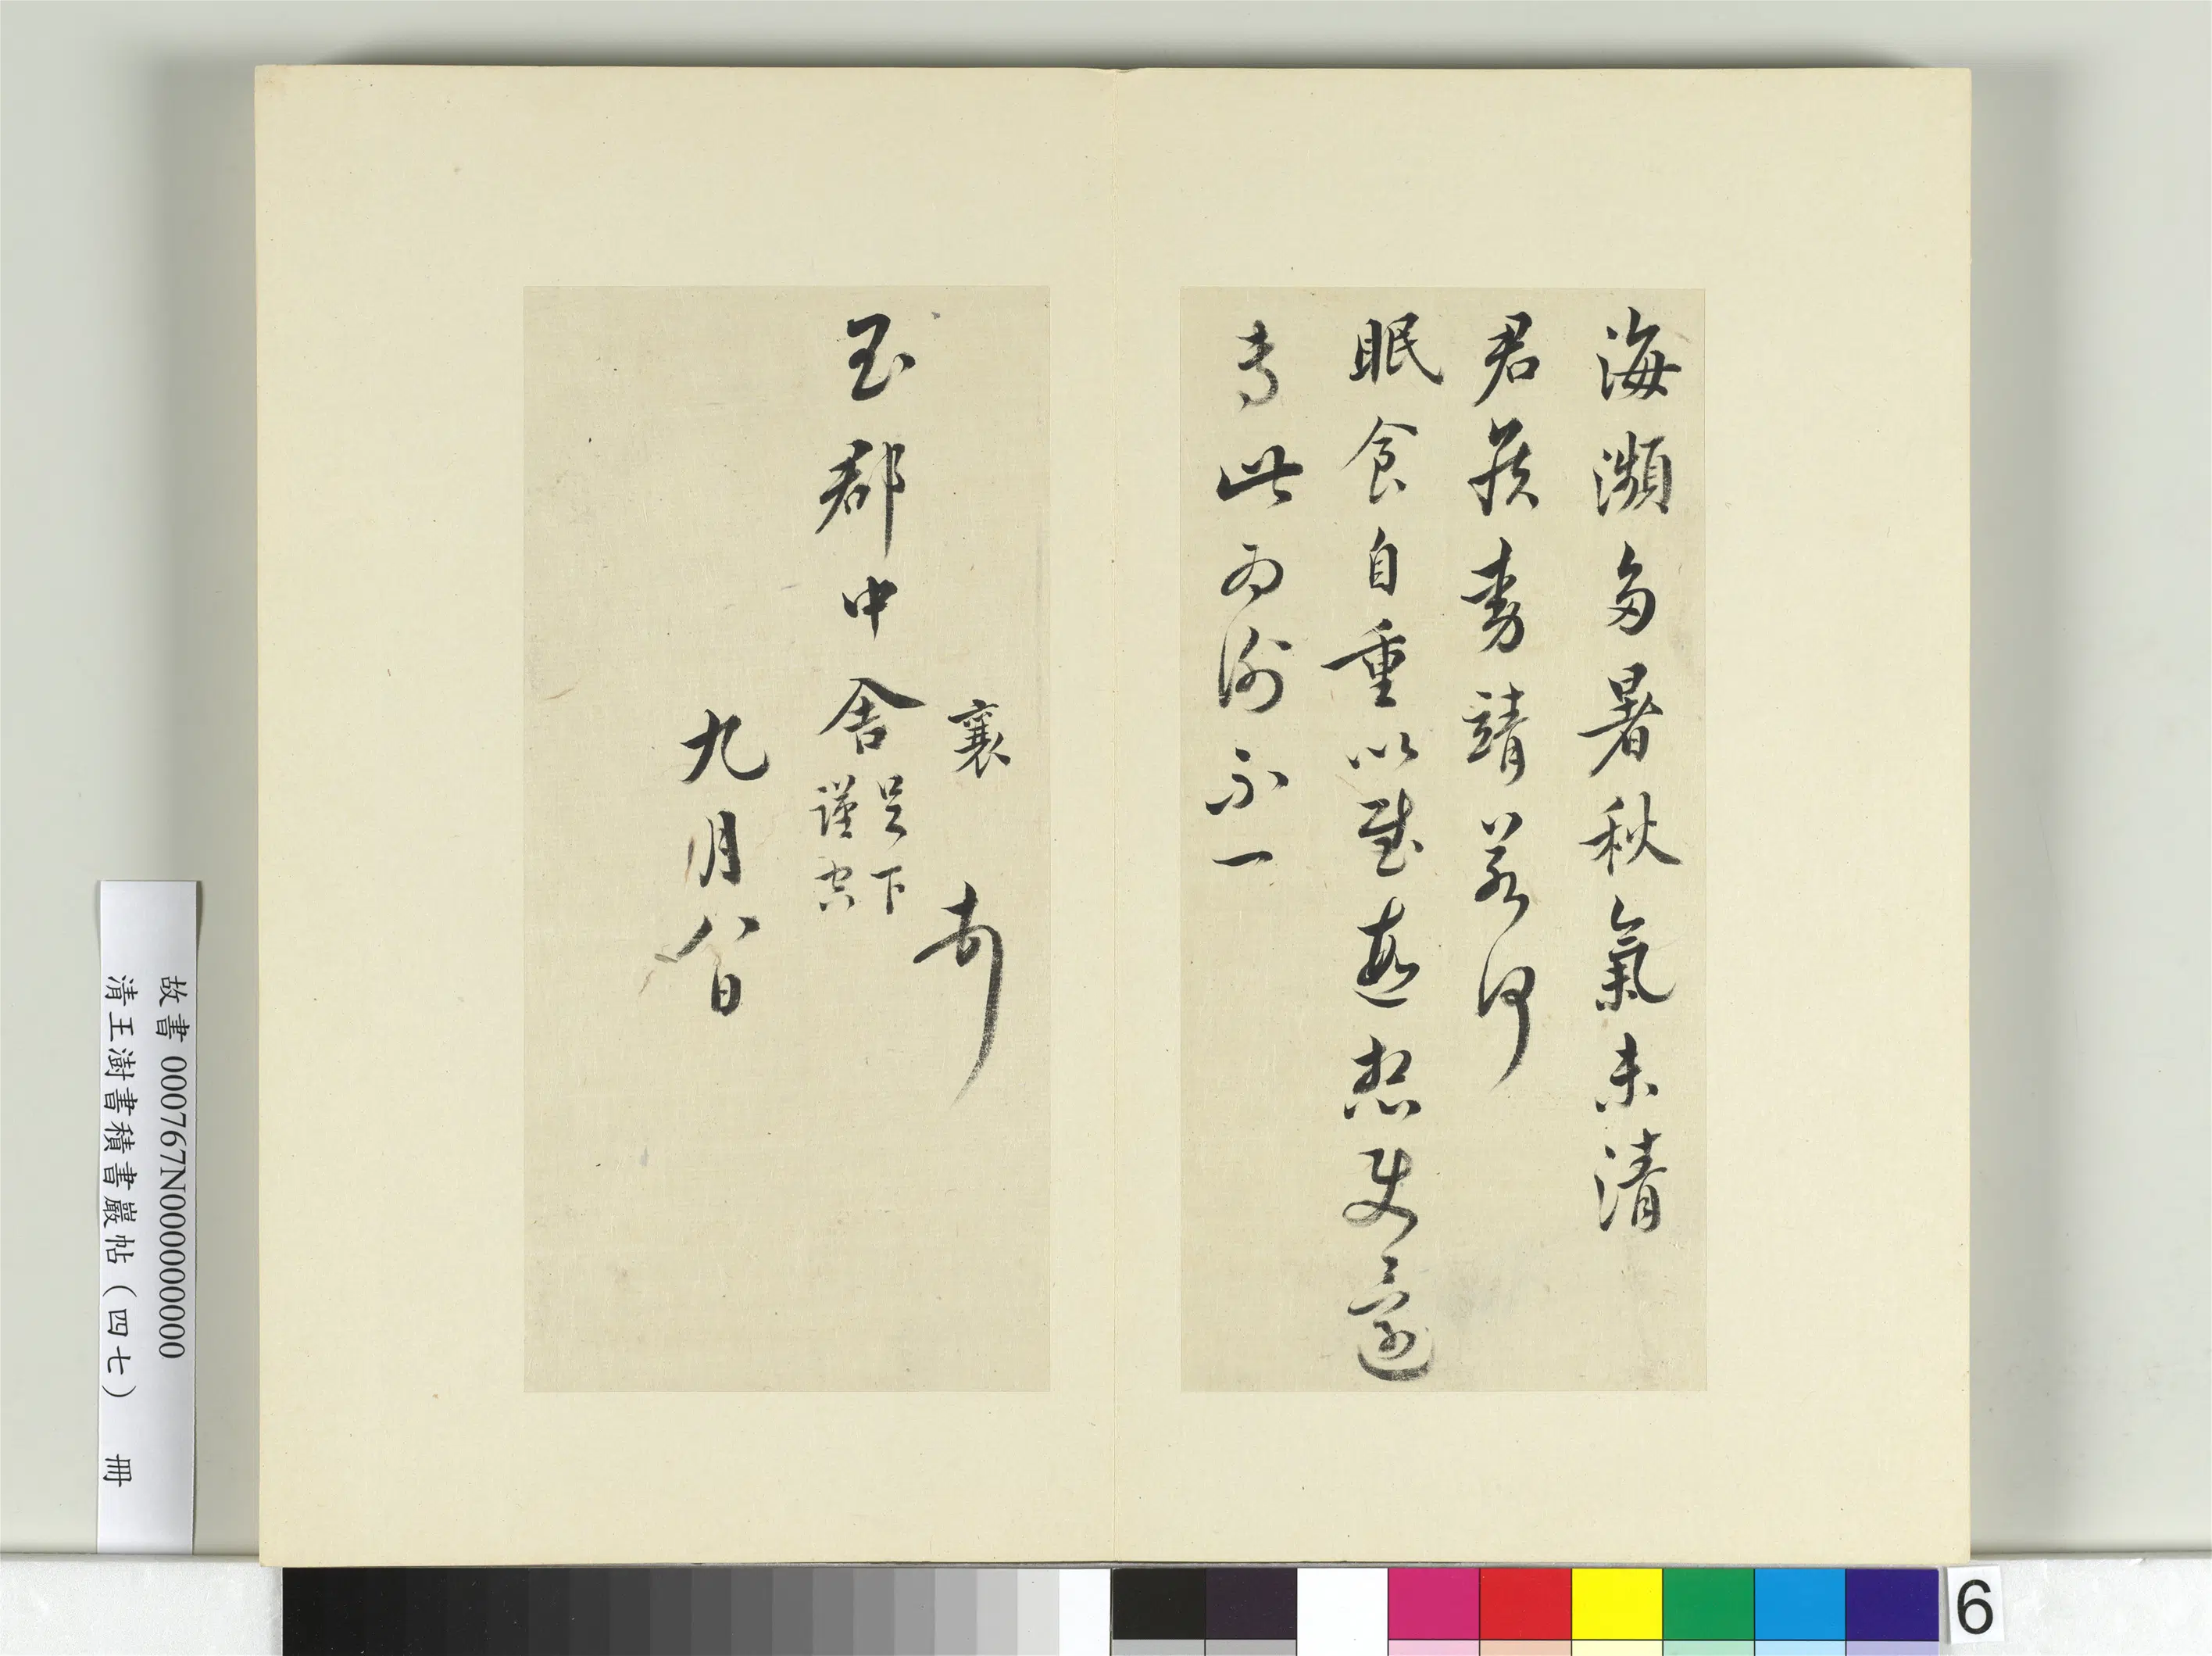 海瀕多暑秋氣未清
君侯動靖若何
眠食自重以慰遐想使還
專此為謝不一
襄
郡中舍足下謹空
九月八日
故書 000767N000000000
清王澍書積書巖帖(四七) 冊
6